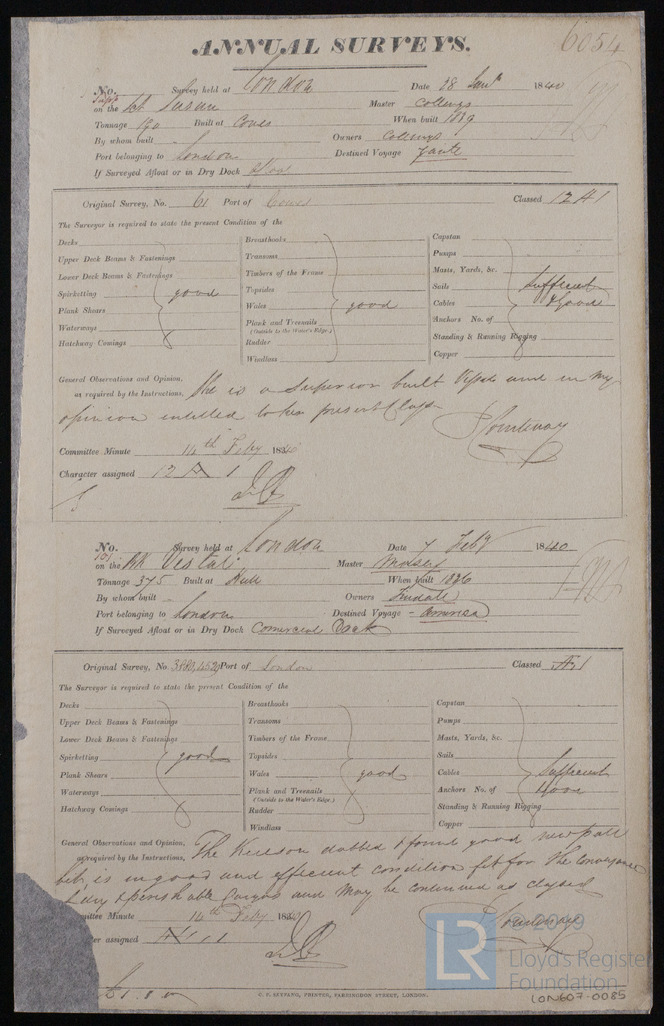 6054
ANNUAL SURVEYS.
No. Survey held at London Date 28 Jany 1840
on the Susan Master Collings
Tonnage 190 Built at Cowes When built 1839
By whom built Owners Collings
Port belonging to London Destined Voyage Zante
If Surveyed Afloat or in Dry Dock afloat
Original Survey, No. 61 Port of Cowes Classed 12 A 1
The Surveyor is required to state the present Condition of the
Decks
Upper Deck Beams & Fastenings
Lower Deck Beams & Fastenings
Spirketting good
Plank Shears
Waterways
Hatchway Comings
Breasthooks
Transoms
Timbers of the Frame
Topsides
Wales good
Plank and Treenails
(Outside to the Water's Edge.)
Rudder
Windlass
Capstan
Pumps
Masts, Yards, &c.
Sails Sufficient
Cables & Good
Anchors No. of
Standing & Running Rigging
Copper
General Observations and Opinion, She is a Superior built Vessel and in my
as required by the Instructions,
opinion entitled to her present Class
Committee Minute 14th Feby 1840
Character assigned 12 A 1
No. Survey held at London Date 7 Feby 1840
on the Bk Vestal Master
Tonnage 375 Built at Hull When built 1836
By whom built Owners Tindale
Port belonging to London Destined Voyage America
If Surveyed Afloat or in Dry Dock Comercial Dock
Original Survey, No. Port of London Classed A 1
The Surveyor is required to state the present Condition of the
Decks
Upper Deck Beams & Fastenings
Lower Deck Beams & Fastenings
Spirketting good
Plank Shears
Waterways
Hatchway Comings
Breasthooks
Transoms
Timbers of the Frame
Topsides
Wales good
Plank and Treenails
(Outside to the Water's Edge.)
Rudder
Windlass
Capstan
Pumps
Masts, Yards, &c.
Sails
Cables Sufficient
Anchors No. of & Good
Standing & Running Rigging
Copper
General Observations and Opinion, The Keelson dubbed & found good new pall
as required by the Instructions,
bit, is in good and efficient condition fit for the Conveyance
of dry & perishable Cargos and May be continued as classed
mittee Minute 14th Feby 1840
ter assigned A 1
C. F. SEYFANG, PRINTER, FARRINGDON STREET, LONDON.
LR
© 2019
Lloyd's Register
Foundation
LON607-0085